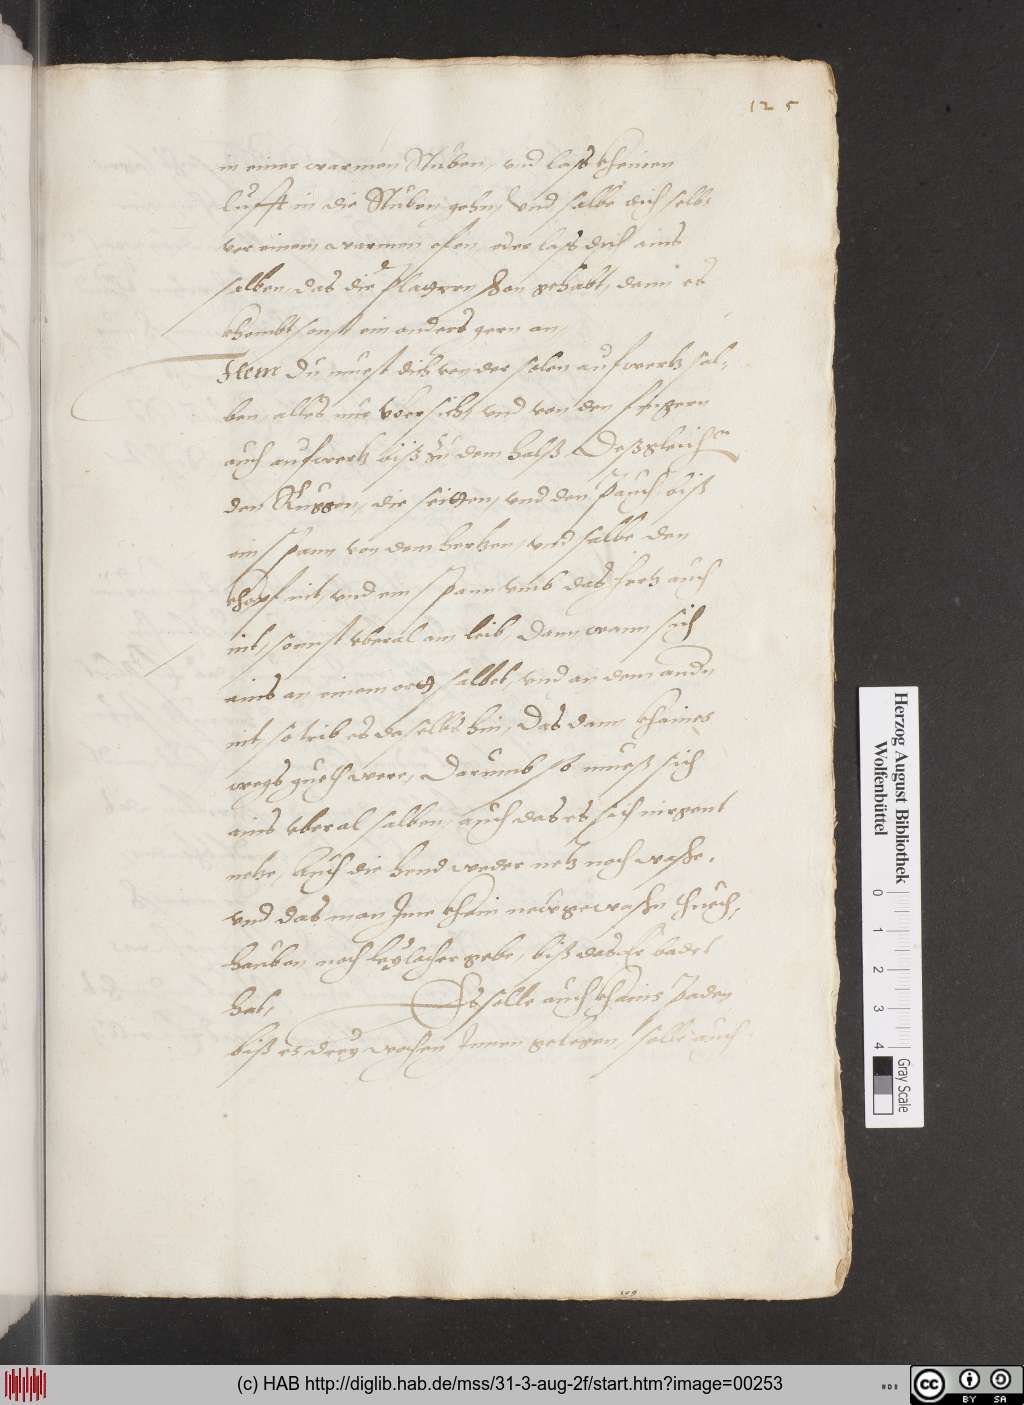 125
in einer warmen Stuben, und lass kheinen
lufft in die Stuben gehn, Und salbe dich selbs
vor einem warmen ofen, oder lass dich ains
salben, das die Plagen schon gehabt, dann es
khombt sonst ein anders gern an,
Item Du muest dich von der solen aufwertz sal-
ben, alles nur ubersich, und von den fingern
auch aufwertz biß zu dem halß, Deßgleichen
den Ruggen, die seitten, und den Pauch, biß
ein spann von dem hertzen, und salbe den
khopf nit, und ein spann umb das hertz auch
nit, sonnst uberal am leib, Dann wann sich
ains an einem ortt salbet, und an dem andern
nit, so trib es daselbs hin, Das dann khaines
wegs gueth were, Darumb so mueß sich
ains uberal salben, auch das es sich nirgent
netze, Auch die hend weder netz noch wasche,
und das man Ime khain new gewaschen thuech,
hauben noch leylacher gebe, biß das Er badet
hab, Es solle auch khains Paden
biß es drey wochen Innen gelegen, solle auch
109
Herzog August Bibliothek
Wolfenbüttel
0 1 2 3 4
Gray Scale
(c) HAB http://diglib.hab.de/mss/31-3-aug-2f/start.htm?image=00253
cc BY SA